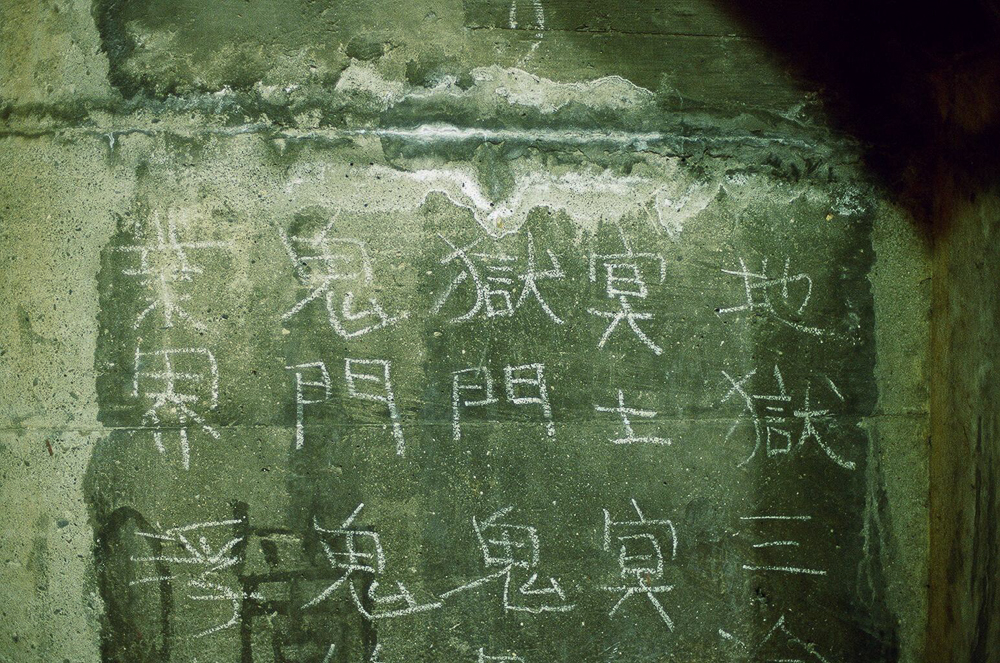 地獄三
冥土冥
獄門鬼
鬼門鬼
業界浮